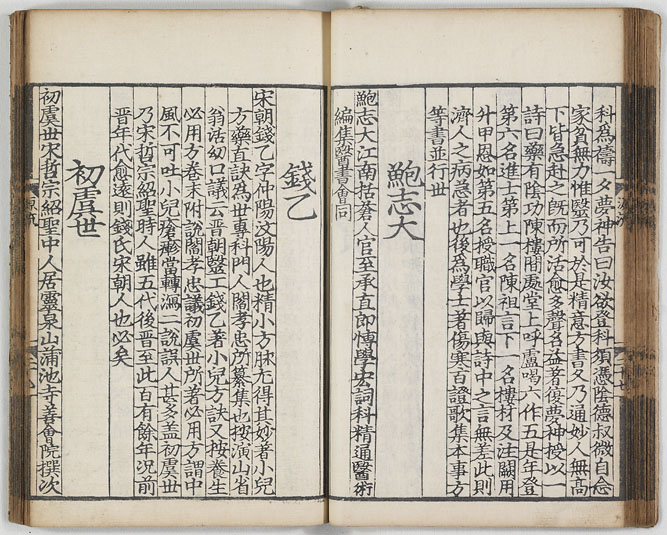 科為禱一夕夢神告曰汝欲登科須憑陰德叔微自念
家貧無力惟醫乃可於是精意方書久乃通妙人無高
下皆急赴之既而所活愈多聲名益著復夢神授以一
詩曰藥有陰功陳樓間處堂上呼盧喝六作五是年登
第六名進士第上一名陳祖言下一名樓材及注闕用
升甲恩如第五名授職官以歸與詩中之言無差此則
濟人之病急者也後為學士著傷寒百證歌集本事方
等書並行世
鮑志大
鮑志大江南括蒼人官至承直郎博學宏詞科精通醫術
編集醫書會同
錢乙
宋朝錢乙字仲陽汶陽人也精小方脉尤得其妙著小兒
方藥直訣為世專科門人閻孝忠所纂集也按演山省
翁活幼口議云晋朝醫工錢乙著小兒方訣又按養生
必用方卷末附說閻孝忠議初虞世所著必用方謂中
風不可吐小兒瘡疹當轉瀉二說誤人甚多盖初虞世
乃宋哲宗紹聖時人雖五代後晋至此百有餘年况前
晋年代愈遠則錢氏宋朝人也必矣
初虞世
初虞世宋哲宗紹聖中人居靈泉山蒲池寺善會院撰次